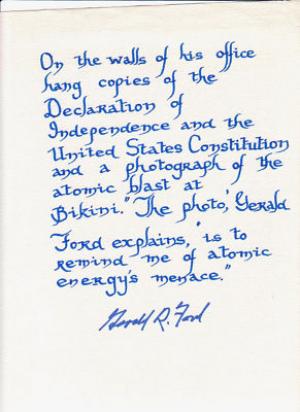 On the walls of his office
hang copies of the
Declaration of
Independence and the
United States Constitution
and a photograph of the
atomic blast at
Bikini. "The photo," Gerald
Ford explains, "is to
remind me of atomic
energy's menace."
Gerald R. Ford